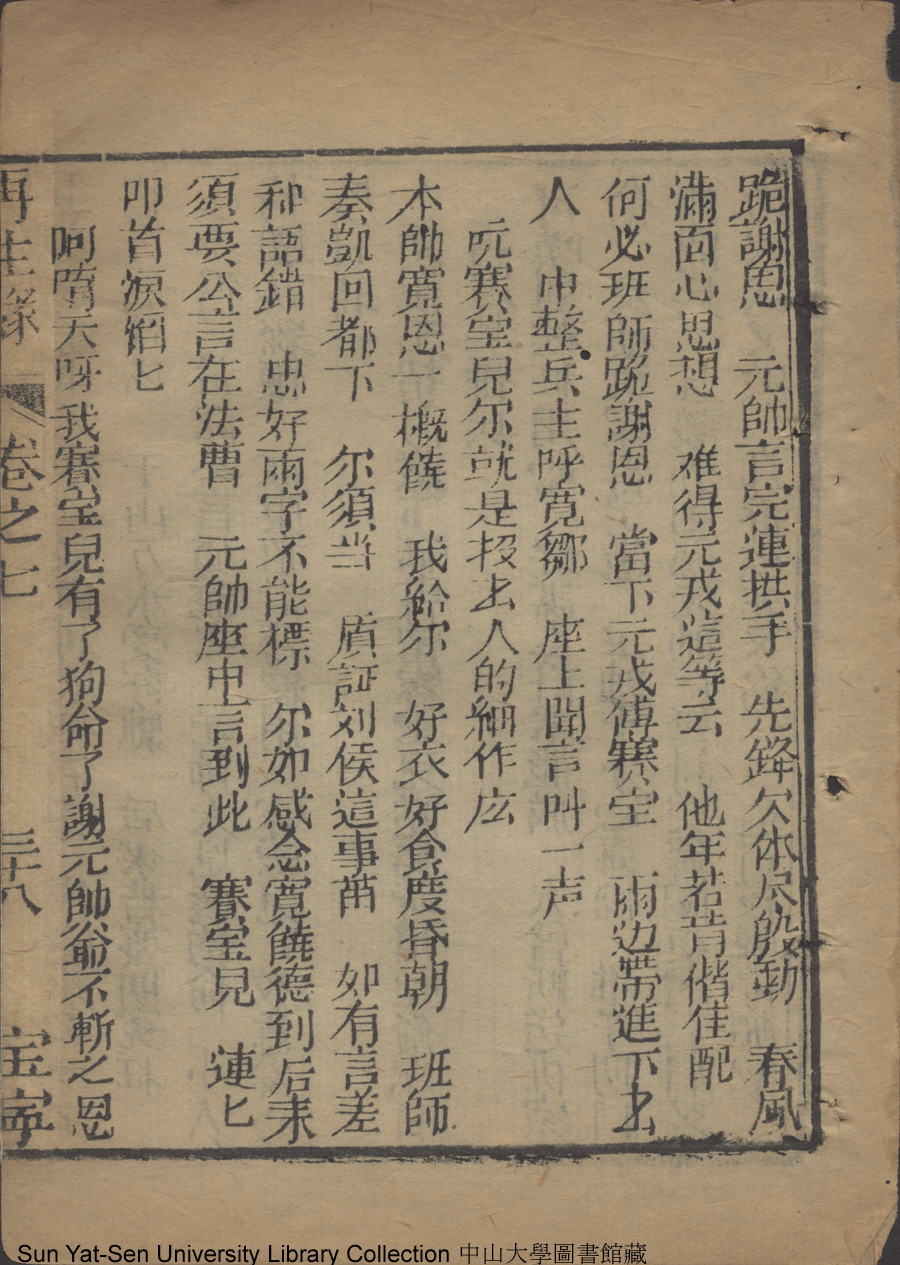 跪謝恩　元帥言完連拱手　先鋒欠体尽殷勤　春風
滿面心思想　难得元戎這等云　他年若肯偕佳配
何必班師跪謝恩　當下元戎傳賽宝　兩边帶進下
人　中整兵主呼寛鄒　座上聞言叫一声
吭賽宝兒尔就是投的細作庅
本帥寬恩一概饒　我給尔　好衣好食度昏朝　班師
奏凱回都下　尔須当　質証刘侯這事苗　如有言差
和語錯　忠好兩字不能標　尔如感念寬饒德到后来
須要公言在法曹　元帥座中言到此　賽宝兒　連匕
叩首淚滔匕
呵唷天呀我賽宝兒有了狗命了謝元帥爺不斬之恩
再生緣　卷之七　三十八　宝寧
Sun Yat-Sen University Library Collection 中山大學圖書館藏